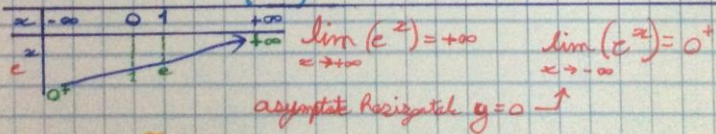 x | -∞ 0 1 +∞
e^x | 0⁺ 1 e +∞
lim (e^x) = +∞ lim (e^x) = 0⁺
x→+∞ x→-∞
asymptote horizontale y=0